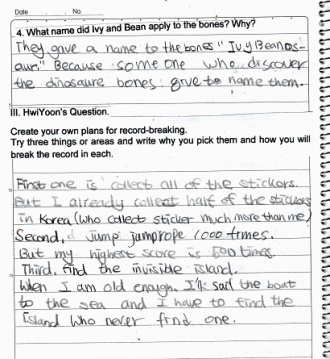 Date No.
4. What name did Ivy and Bean apply to the bones? Why?
They gave a name to the bones "Ivy Beanos-
aur." Because some one who discover
the dinosaure bones give to name them.
III. HwiYoon's Question.
Create your own plans for record-breaking.
Try three things or areas and write why you pick them and how you will
break the record in each.
First one is collect all of the stickors.
But I already collect half of the stickors
in Korea (who collect sticker much more than me)
Second, jump jumprope 1000 times.
But my highest score is 500 times.
Third, find the invisible island.
When I am old enough, I'll sail the boat
to the sea and I have to find the
island who never find one.